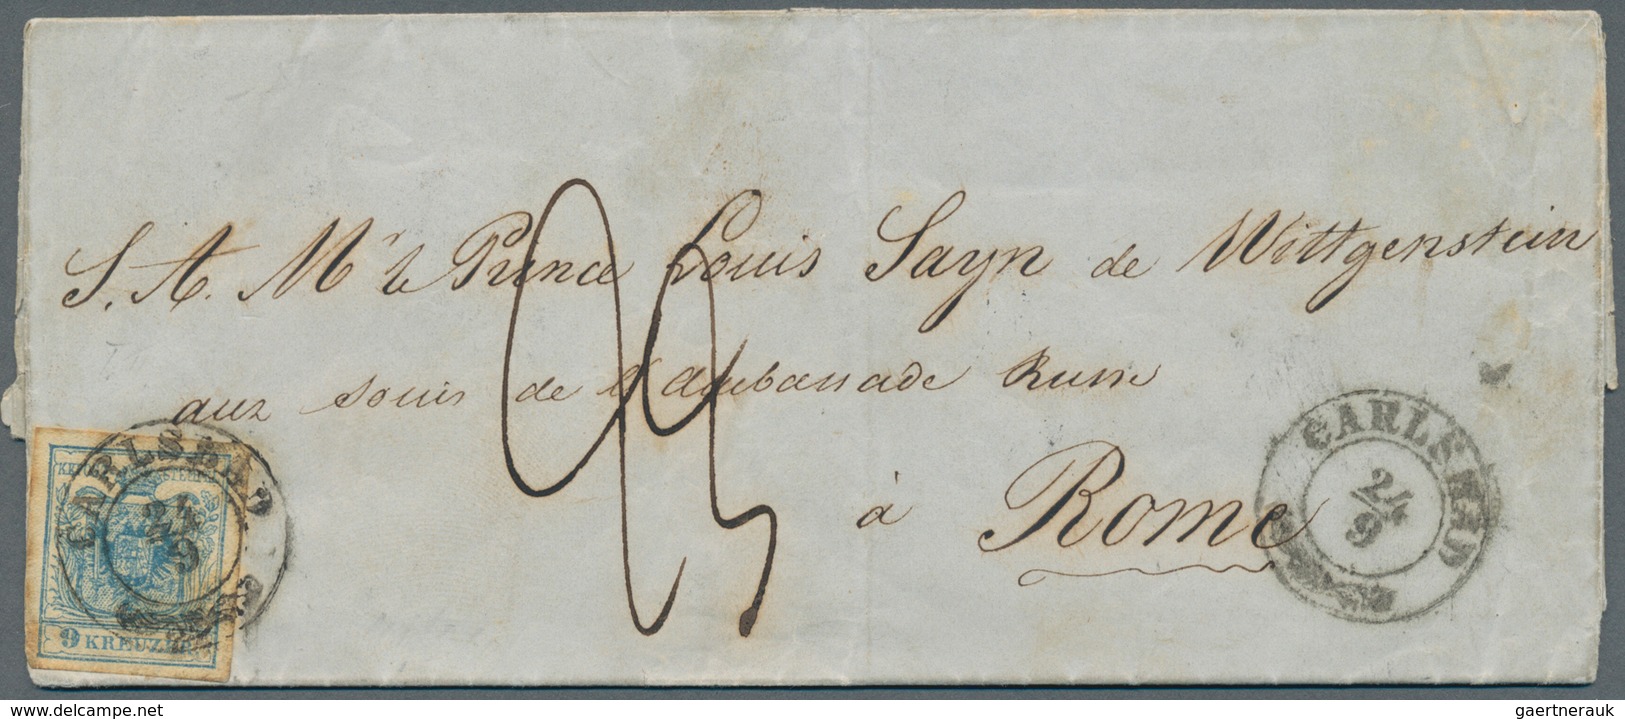 S. A. Mr le Prince Louis Sayn de Wittgenstein
aux soins de l'Ambassade Russe
à Rome
CARLSBAD
24
9
9 KREUZER
CARLSBAD
24
9
www.delcampe.net
gaertnerauk